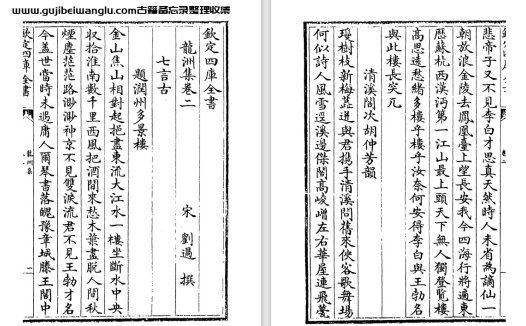 www.gujibeiwanglu.com古籍备忘录整理收集
欽定四庫全書
龍洲集卷二
宋 劉過 撰
七言古
題潤州多景樓
金山焦山相對起挹盡東流大江水一樓坐斷水中央
收拾淮南數千里西風把酒閒來愁木葉盡脫人間秋
煙塵茫茫路渺渺神京不見雙淚流君不見王勃才名
今蓋世當時未遇庸人爾琴書落魄豫章城滕王閣中
欽定四庫全書
龍洲集
悲帝子又不見李白才思真天然時人未省為謫仙一
朝放浪金陵去鳳凰臺上望長安我今四海行將遍東
歷蘇杭西漢沔第一江山最上頭天下無人獨登覽樓
高思遠愁緒多樓乎樓乎汝奈何安得李白與王勃名
與此樓長突兀
清溪閣次胡仲芳韻
瓊樹枝新梅蘂迸與君攜手清溪問舊來俠客歌舞場
何似詩人風雪逕溪邊傑閣高崚嶒左右華屋連飛甍